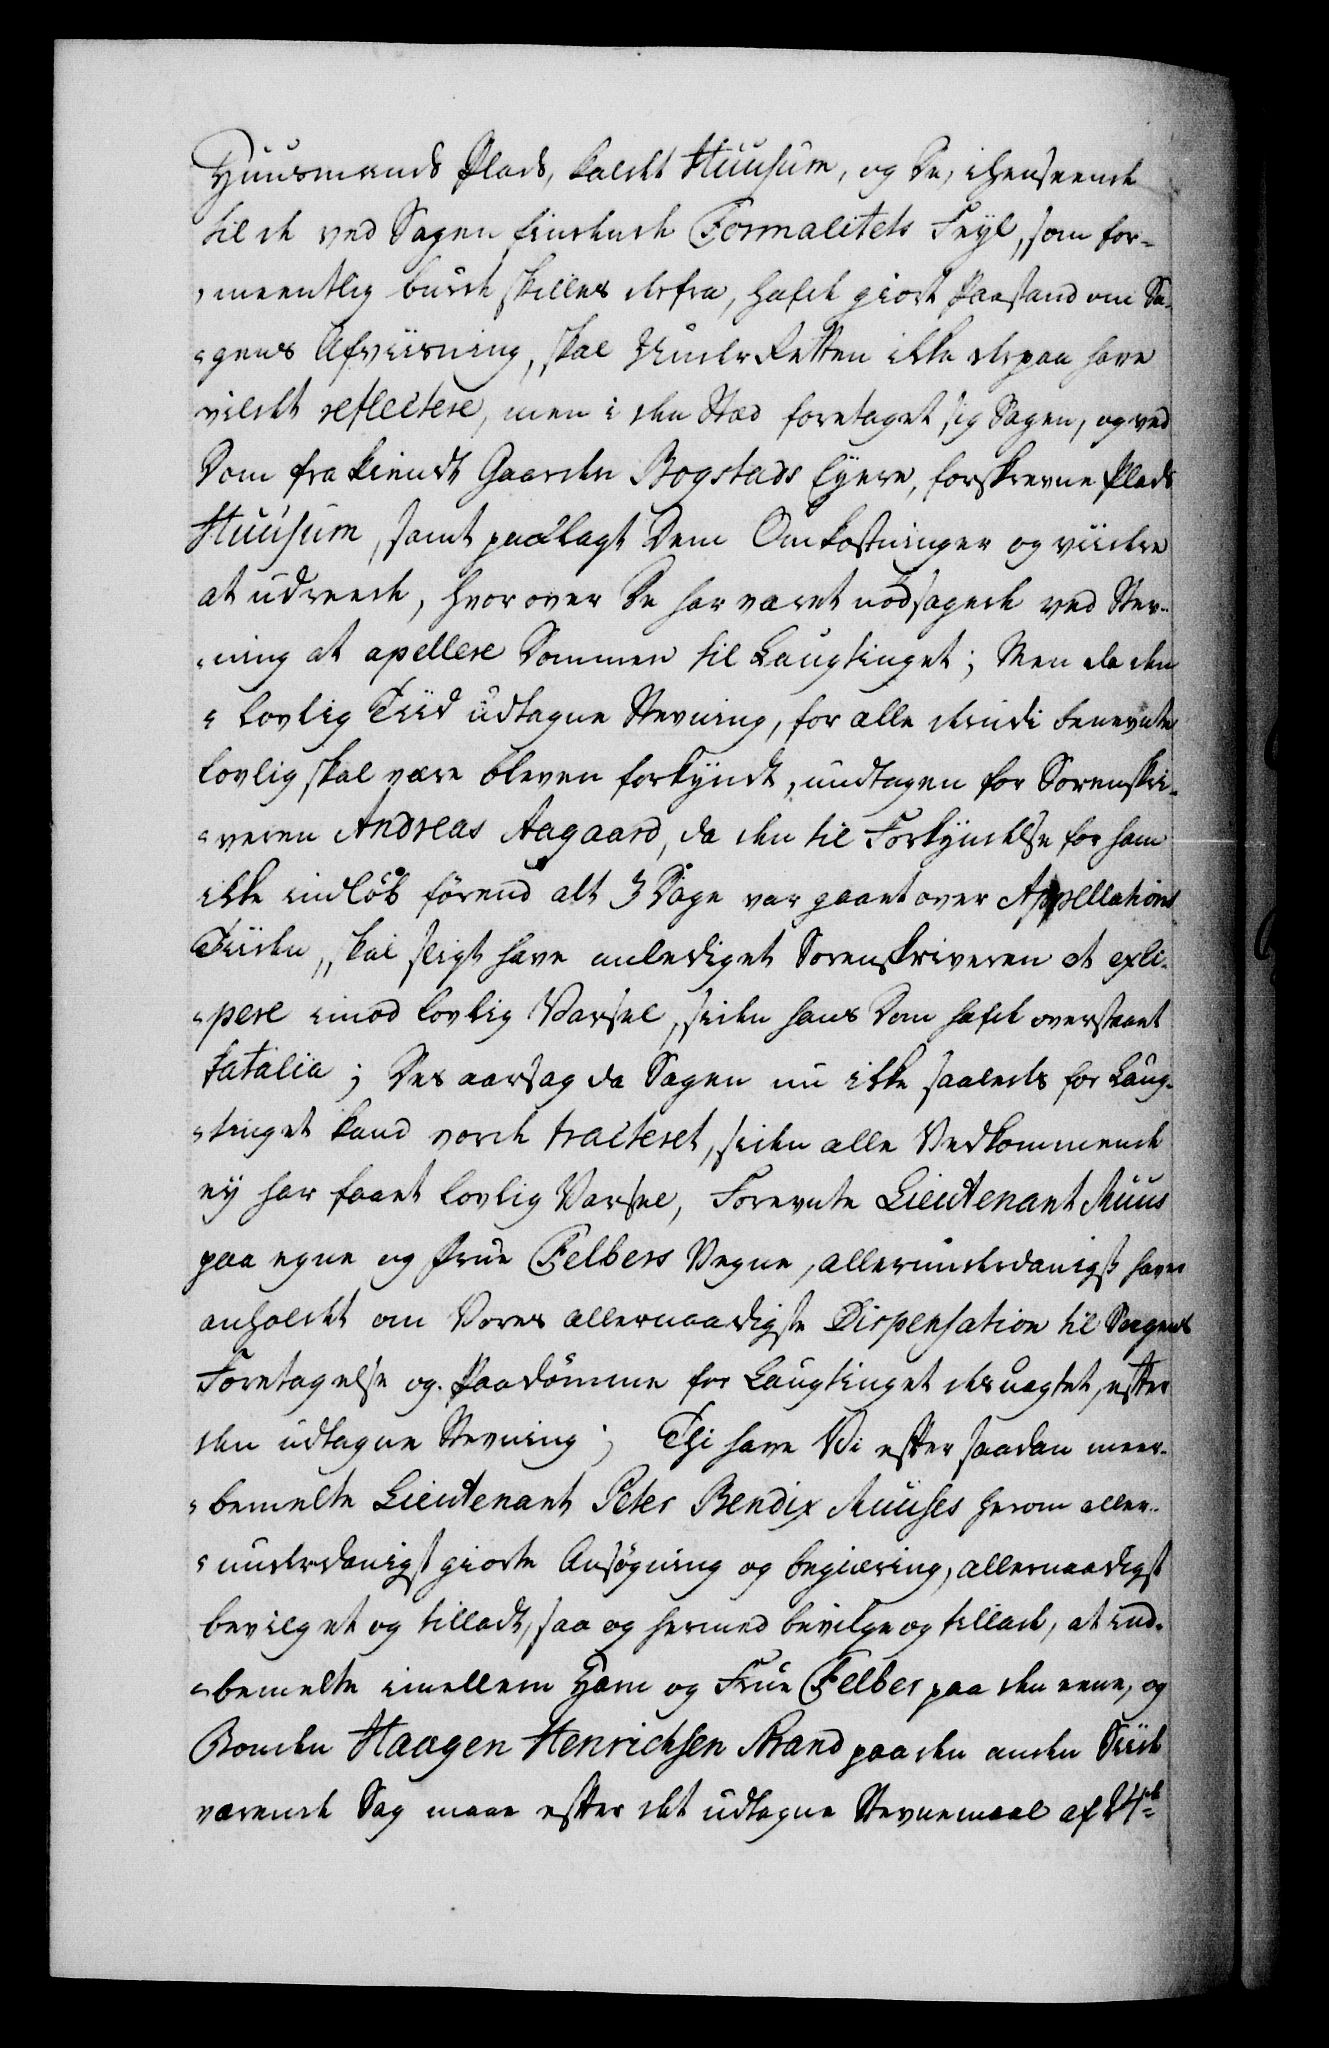 Huusmands Plads, kaldet Huusum, og De, i henseende
til de ved Sagen findende Formalitets Feyl, som for-
meentlig burde skilles derfra, hafde giort Paastand om Sa-
gens Afviisning, skal Under Retten ikke derpaa have
vildet reflectere, men i den Sted foretaget sig Sagen, og ved
Dom fra kiendt Gaarden Bogstads Eyere, forskrevne Plads
Huusum, samt paalagt Dem Omkostninger og viidere
at udreede, hvorover De har været nødsagede ved Stev-
ning at apellere Dommen til Laugtinget; Men da den
i lovlig Tiid udtagne Stevning, for alle derudi benevnte
lovlig skal være bleven forkyndt, undtagen for Sorenskri-
veren Andreas Aagaard, da den til Forkyndelse for ham
ikke indløb førend alt 3 Dage var gaaet over Appellations
Tiiden, skal sligt have anlediget Sorenskriveren at exci-
pere imod lovlig Varsel, siden hans Dom hafde overstaaet
fatalia; Des aarsag da Sagen nu ikke saaledes for Laug-
tinget kand vorde tracteret, siden alle Vedkommende
ey har faaet lovlig Varsel, Forevnte Lieutenant Muus
paa egne og Frue Felbers Vegne, allerunderdanigst haver
anholdet om Vores allernaadigste Dispensation til Sagens
Foretagelse og Paadømme for Laugtinget desuagtet, efter
den udtagne Stevning; Thi have Vi efter saadan meer-
bemelte Lieutenant Peter Bendix Muuses herom aller-
underdanigst giorte Ansøgning og begiæring, allernaadigst
bevilget og tilladt, saa og hermed bevilge og tillade, at ind-
bemelte imellem Ham og Frue Felber paa den eene, og
Bonden Haagen Henrichsen Brand paa den anden Siide
værende Sag maae efter det udtagne Stevnemaal af 24de